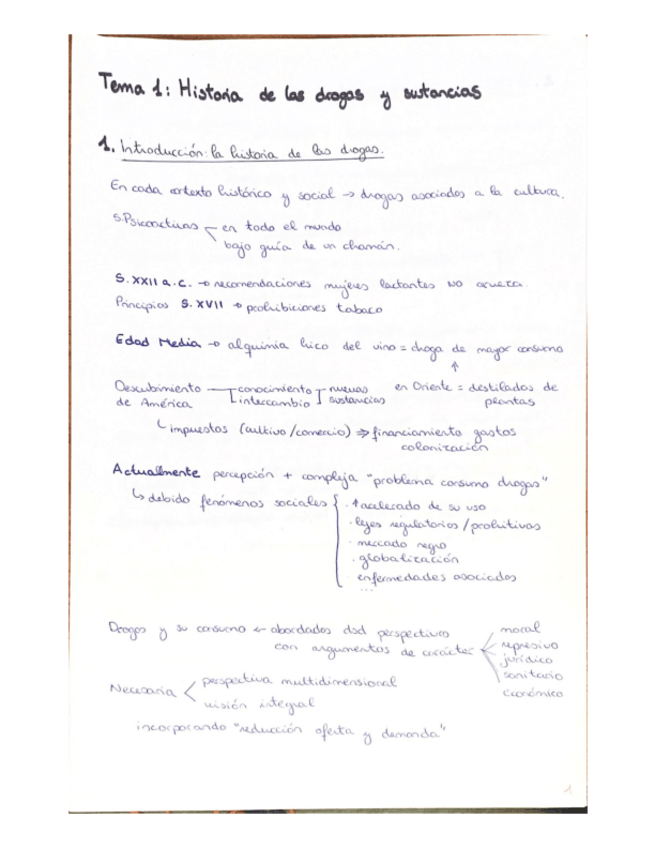 Tema 1: Historia de las drogas y sustancias
1. Introducción: la historia de las drogas.
En cada contexto histórico y social → drogas asociadas a la cultura.
S.Psicoactivas en todo el mundo
bajo guía de un chamán.
S. XXII a.C. → recomendaciones mujeres lactantes NO cerveza.
Principios S. XVII → prohibiciones tabaco
Edad Media → alquimia hizo del vino = droga de mayor consumo
↑
Descubrimiento conocimiento nuevas en Oriente = destilados de
de América intercambio sustancias plantas
↳ impuestos (cultivo/comercio) ⇒ financiamiento gastos
colonización
Actualmente percepción + compleja "problema consumo drogas"
↳ debido fenómenos sociales { · ↑ acelerado de su uso
· leyes regulatorias / prohibitivas
· mercado negro
· globalización
enfermedades asociadas
...
Drogas y su consumo ← abordados dsd perspectivas moral
con argumentos de carácter represivo
jurídico
sanitario
económico
Necesaria perspectiva multidimensional
visión integral
incorporando "reducción oferta y demanda"
1